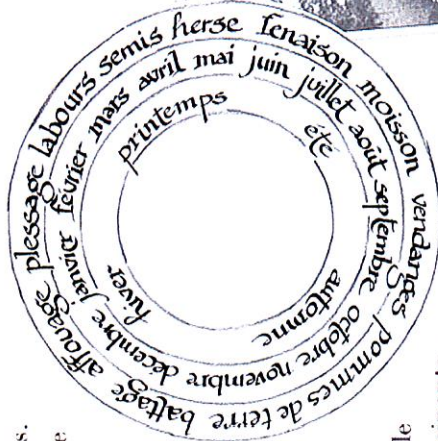 labours semis herse fenaison moisson vendanges pommes de terre battage affouage plessage
janvier février mars avril mai juin juillet août septembre octobre novembre décembre
printemps été automne hiver
s.
e
le